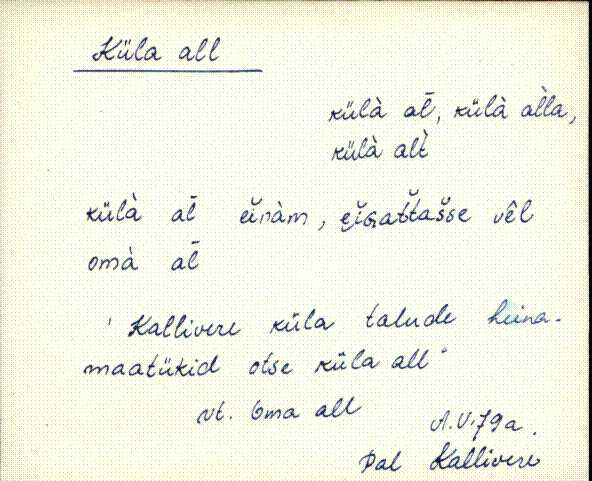 Küla all
külà al̄, külà al̀la,
külà alt̀
külà al̄ ei̯nàm, ei̯Gattasse vêl
omà al̄
'Kallivere küla talude heina-
maatükid otse küla all"
vt. Oma all
A.V.79a.
Pal Kallivere